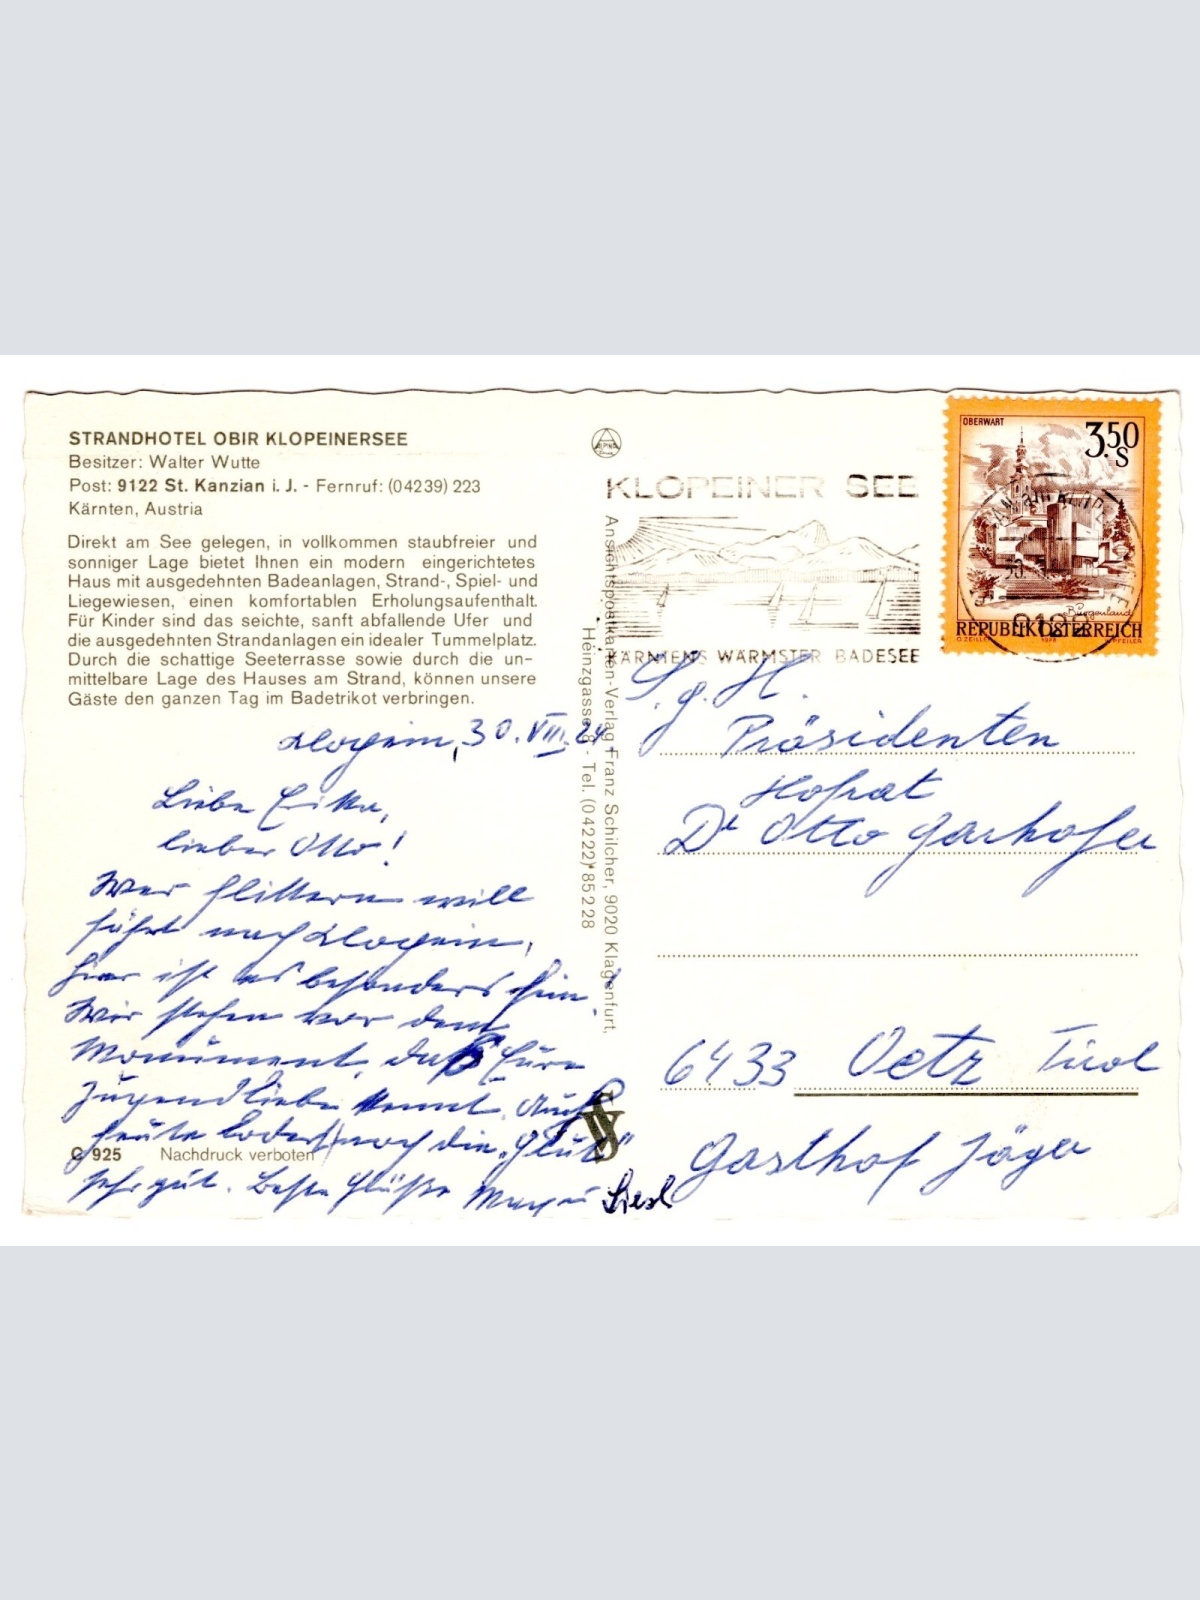 STRANDHOTEL OBIR KLOPEINERSEE
Besitzer: Walter Wutte
Post: 9122 St. Kanzian i. J. - Fernruf: (04239) 223
Kärnten, Austria
Direkt am See gelegen, in vollkommen staubfreier und
sonniger Lage bietet Ihnen ein modern eingerichtetes
Haus mit ausgedehnten Badeanlagen, Strand-, Spiel- und
Liegewiesen, einen komfortablen Erholungsaufenthalt.
Für Kinder sind das seichte, sanft abfallende Ufer und
die ausgedehnten Strandanlagen ein idealer Tummelplatz.
Durch die schattige Seeterrasse sowie durch die un-
mittelbare Lage des Hauses am Strand, können unsere
Gäste den ganzen Tag im Badetrikot verbringen.
Klopein, 30. VIII.
Liebe Erika,
lieber Otto!
Wer flittern will
fährt nach Klopein,
hier ist es besonders fein.
Wir stehen vor dem
Monument, daß Eure
Jugendliebe kennt. Auch
heute lodert noch die "Glut"
sehr gut. Beste Grüße
Liesl
C 925 Nachdruck verboten
Ansichtspostkarten-Verlag Franz Schilcher, 9020 Klagenfurt,
Heinzgasse 8, Tel. (04222) 85228
KLOPEINER SEE
KÄRNTENS WÄRMSTER BADESEE
OBERWART
3.50
S
Burgenland
REPUBLIK ÖSTERREICH
9122
S. g. H.
Präsidenten
Hofrat
Dr Otto Gerhofer
6433 Oetz Tirol
Gasthof Jäger